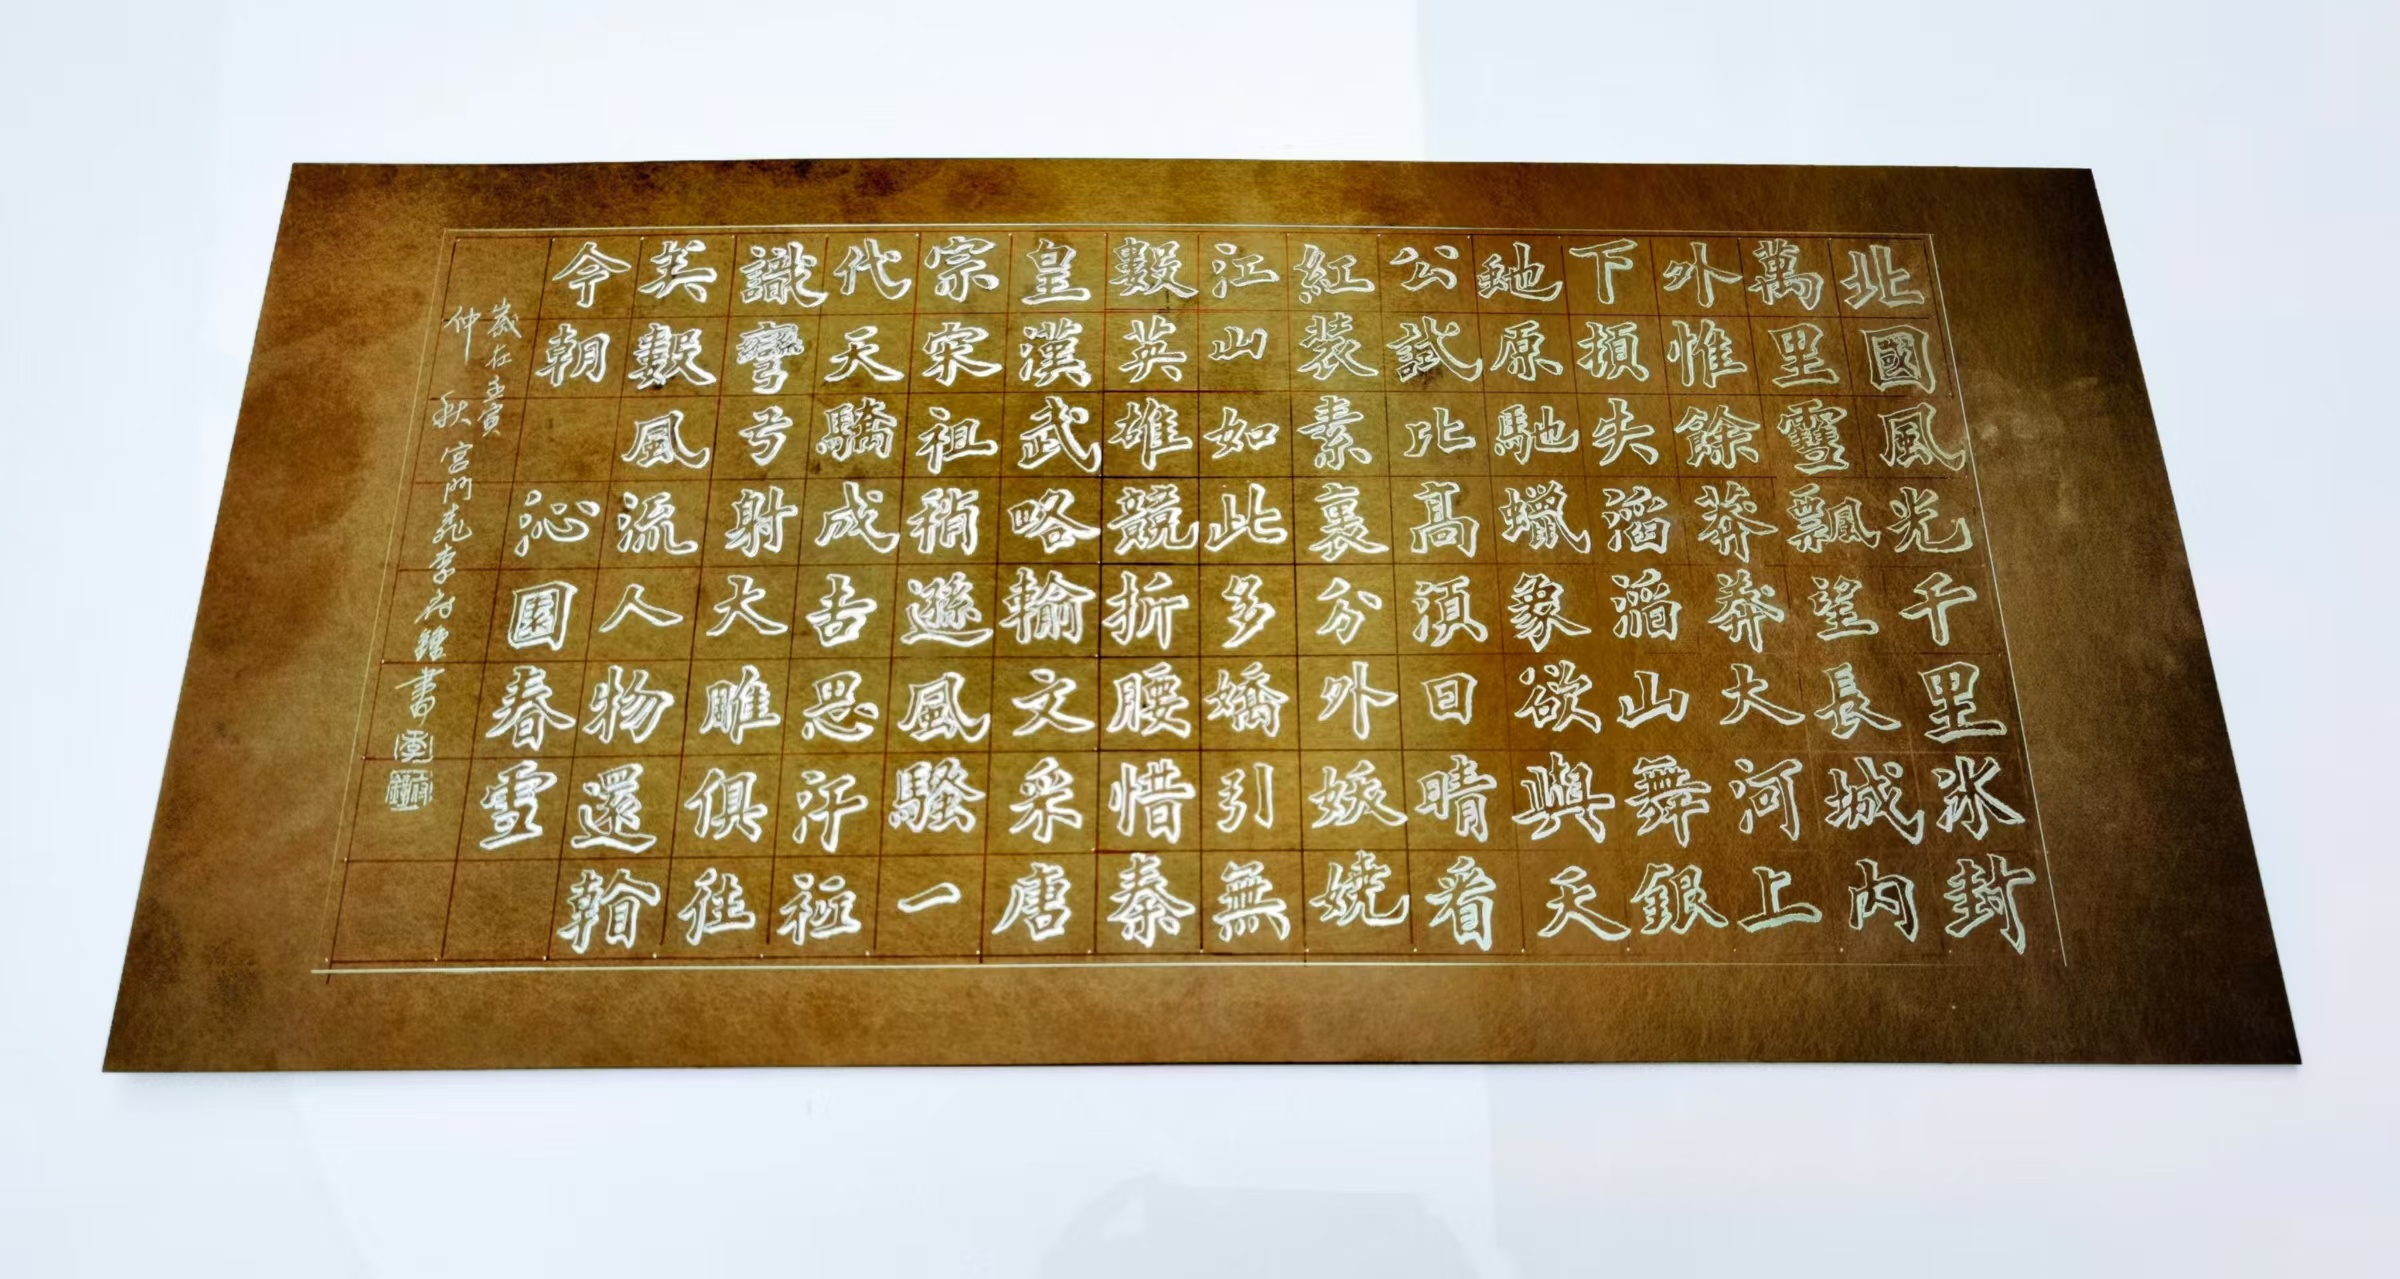 北國風光千里冰封
萬里雪飄望長城內
外惟餘莽莽大河上
下頓失滔滔山舞銀
虵原馳蠟象欲與天
公試比高須日晴看
紅裝素裹分外妖嬈
江山如此多嬌引無
數英雄競折腰惜秦
皇漢武略輸文采唐
宗宋祖稍遜風騷一
代天驕成吉思汗祗
識彎弓射大雕俱往
矣數風流人物還看
今朝 沁園春雪
歲在壬寅
仲秋宮門李府鍾書